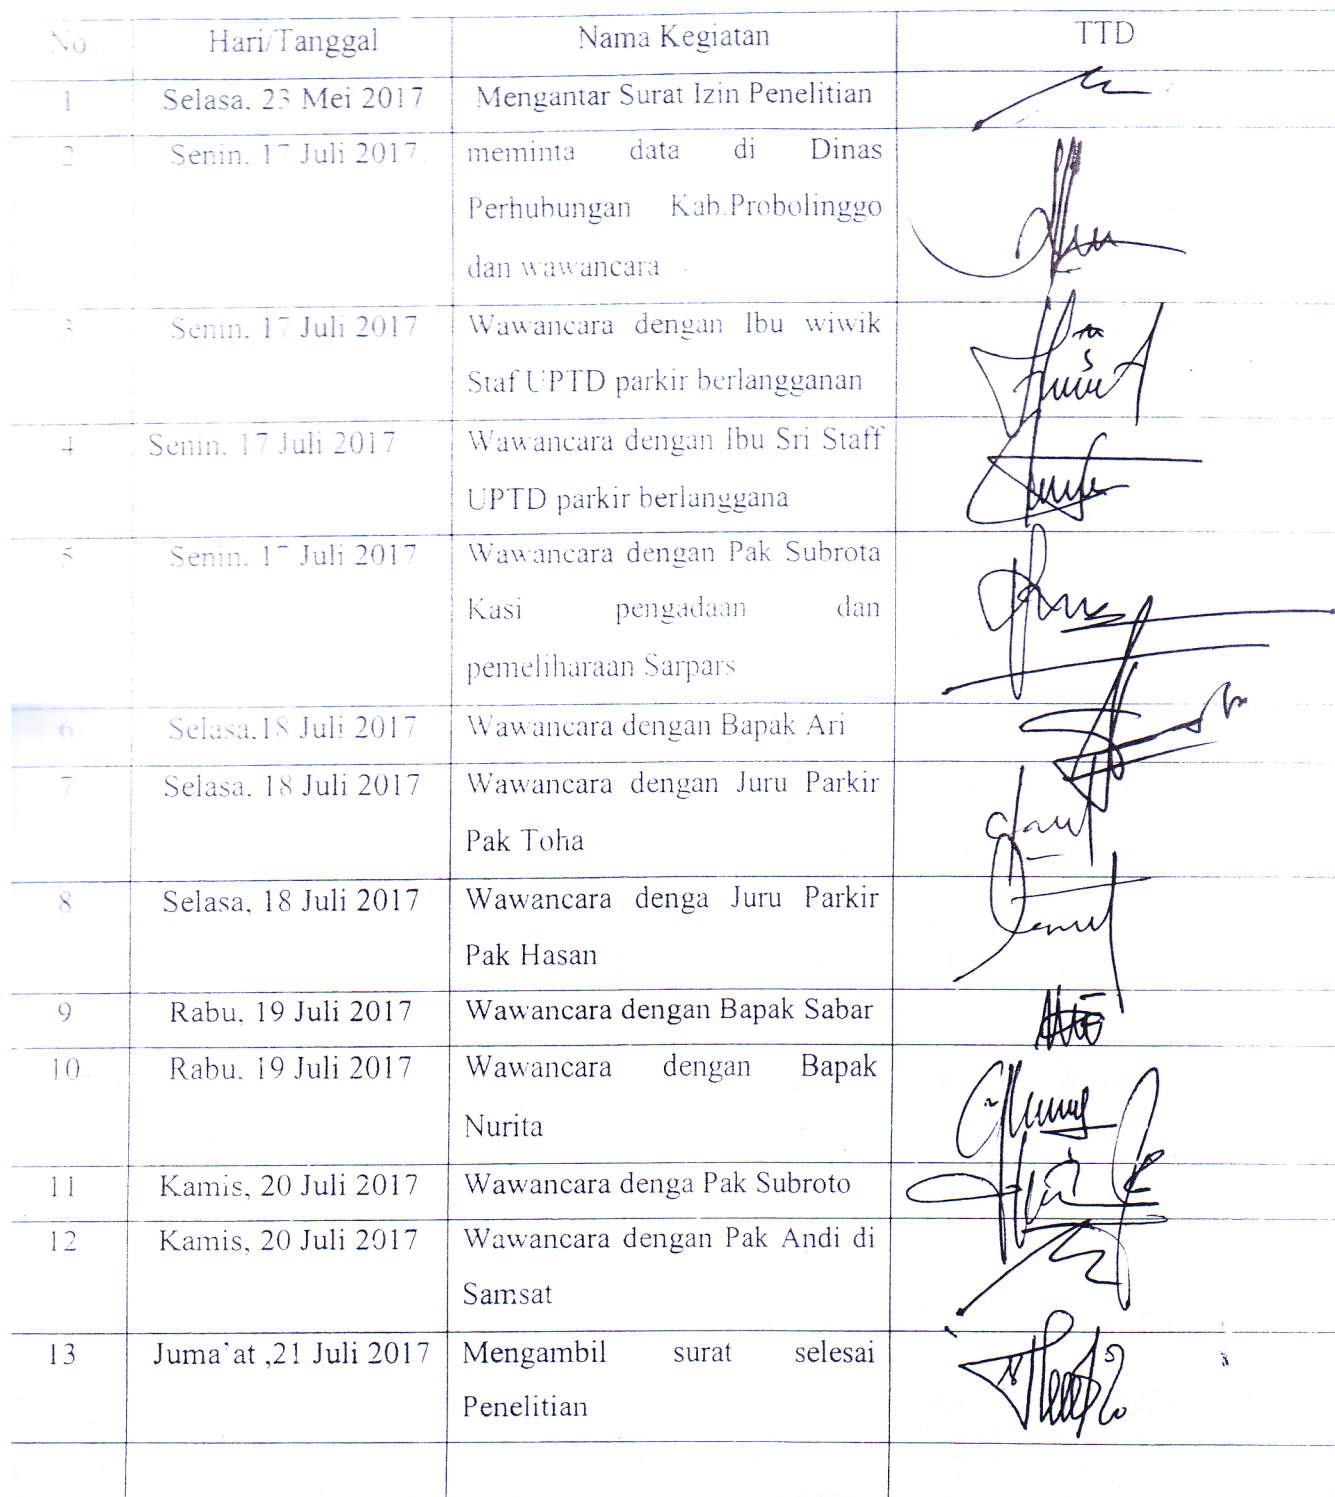 No Hari/Tanggal Nama Kegiatan TTD
1 Selasa. 23 Mei 2017 Mengantar Surat Izin Penelitian
2 Senin. 17 Juli 2017 meminta data di Dinas
Perhubungan Kab.Probolinggo
dan wawancara
3 Senin. 17 Juli 2017 Wawancara dengan Ibu wiwik
Staf UPTD parkir berlangganan
4 Senin. 17 Juli 2017 Wawancara dengan Ibu Sri Staff
UPTD parkir berlanggana
5 Senin. 17 Juli 2017 Wawancara dengan Pak Subrota
Kasi pengadaan dan
pemeliharaan Sarpars
6 Selasa.18 Juli 2017 Wawancara dengan Bapak Ari
7 Selasa. 18 Juli 2017 Wawancara dengan Juru Parkir
Pak Toha
8 Selasa, 18 Juli 2017 Wawancara denga Juru Parkir
Pak Hasan
9 Rabu, 19 Juli 2017 Wawancara dengan Bapak Sabar
10 Rabu. 19 Juli 2017 Wawancara dengan Bapak
Nurita
11 Kamis, 20 Juli 2017 Wawancara denga Pak Subroto
12 Kamis, 20 Juli 2017 Wawancara dengan Pak Andi di
Samsat
13 Juma'at ,21 Juli 2017 Mengambil surat selesai
Penelitian